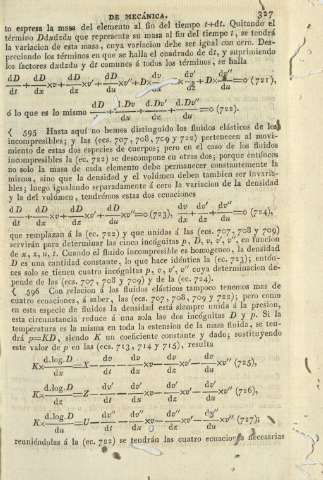 DE MECÁNICA. 327
to espresa la masa del elemento al fin del tiempo t+dt. Quitando el
término Ddxdzdu que representa su masa al fin del tiempo t, se tendrá
la variacion de esta masa, cuya variacion debe ser igual con cero. Des-
preciendo los términos en que se halla el cuadrado de dt, y suprimiendo
los factores dxdzdu y dt comunes á todos los términos, se halla
ó lo que es lo mismo
595 Hasta aquí no hemos distinguido los fluidos elásticos de los
incompresibles; y las (ecs. 707, 708, 709 y 722) pertenecen al movi-
miento de estas dos especies de cuerpos; pero en el caso de los fluidos
incompresibles la (ec. 722) se descompone en otras dos; porque entónces
no solo la masa de cada elemento debe permanecer constantemente la
misma, sino que la densidad y el volúmen deben tambien ser invaria-
bles; luego igualando separadamente á cero la variacion de la densidad
y la del volúmen, tendrémos estas dos ecuaciones
que remplazan á la (ec. 722) y que unidas á las (ecs. 707, 708 y 709)
servirán para determinar las cinco incógnitas p, D, v, v', v'', en funcion
de x, z, u, t. Cuando el fluido incompresible es homogeneo, la densidad
D es una cantidad constante, lo que hace idéntica la (ec. 723); entón-
ces solo se tienen cuatro incógnitas p, v, v', v'' cuya determinacion de-
pende de las (ecs. 707, 708 y 709) y de la (ec. 724).
596 Con relacion á los fluidos elásticos tampoco tenemos mas de
cuatro ecuaciones, á saber, las (ecs. 707, 708, 709 y 722); pero como
en esta especie de fluidos la densidad está siempre unida á la presion,
esta circunstancia reduce á una sola las dos incógnitas D y p. Si la
temperatura es la misma en toda la extension de la masa fluida, se ten-
drá p=KD, siendo K un coeficiente constante y dado; sustituyendo
este valor de p en las (ecs. 713, 714 y 715), resulta
reuniéndolas á la (ec. 722) se tendrán las cuatro ecuaciones necesarias